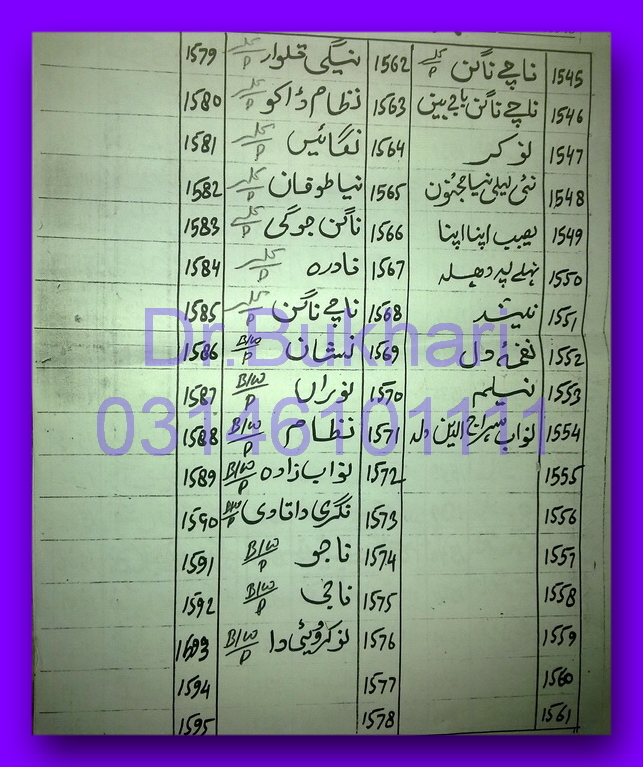 1545 ناچے ناگن کلر/P 1562 ننگی تلوار کلر/P 1579
1546 ناچے ناگن باجے بین 1563 نظام ڈاکو کلر/P 1580
1547 نوکر 1564 کلر/P 1581
1548 نئی لیلی نیا مجنوں 1565 نیا طوفان کلر/P 1582
1549 نصیب اپنا اپنا 1566 ناگن جوگی کلر/P 1583
1550 نہلے پہ دھلہ 1567 نادرہ کلر/P 1584
1551 نیند 1568 ناچے ناگن کلر/P 1585
1552 نغمۂ دل 1569 نشان B/W/P 1586
1553 نیلم 1570 نوراں B/W/P 1587
1554 نواب سراج الدین دلہ 1571 نظام B/W/P 1588
1555 1572 نواب زادہ B/W/P 1589
1556 1573 نگری داتا دی B/W/P 1590
1557 1574 ناجو B/W/P 1591
1558 1575 ناجی B/W/P 1592
1559 1576 نوکر ووہٹی دا B/W/P 1593
1560 1577 1594
1561 1578 1595
Dr.Bukhari
03146101111